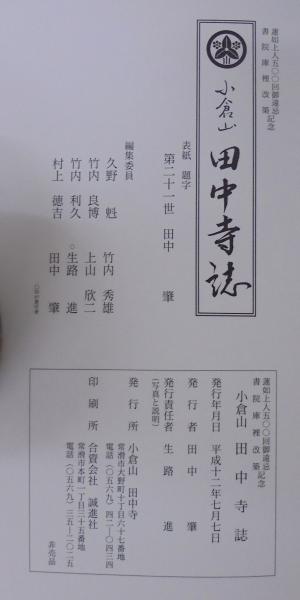 蓮如上人五〇〇回御遠忌
書院庫裡改築記念
小倉山 田中寺誌
表紙 題字
第二十一世 田中 肇
編集委員
久野 魁 竹内 秀雄
竹内 良博 上山 欣二
竹内 利久 ○生路 進
村上 徳吉 田中 肇
蓮如上人五〇〇回御遠忌
書院庫裡改築記念
小倉山 田中寺誌
発行年月日 平成十二年七月七日
発行者 田中 肇
発行責任者 生路 進
(写真と説明)
発行所 小倉山 田中寺
常滑市大野町十丁目六十七番地
電話(〇五六九)四二-〇四三四
印刷所 合資会社 誠進社
常滑市本町一丁目三十五番地
電話(〇五六九)三五-二〇二五
非売品